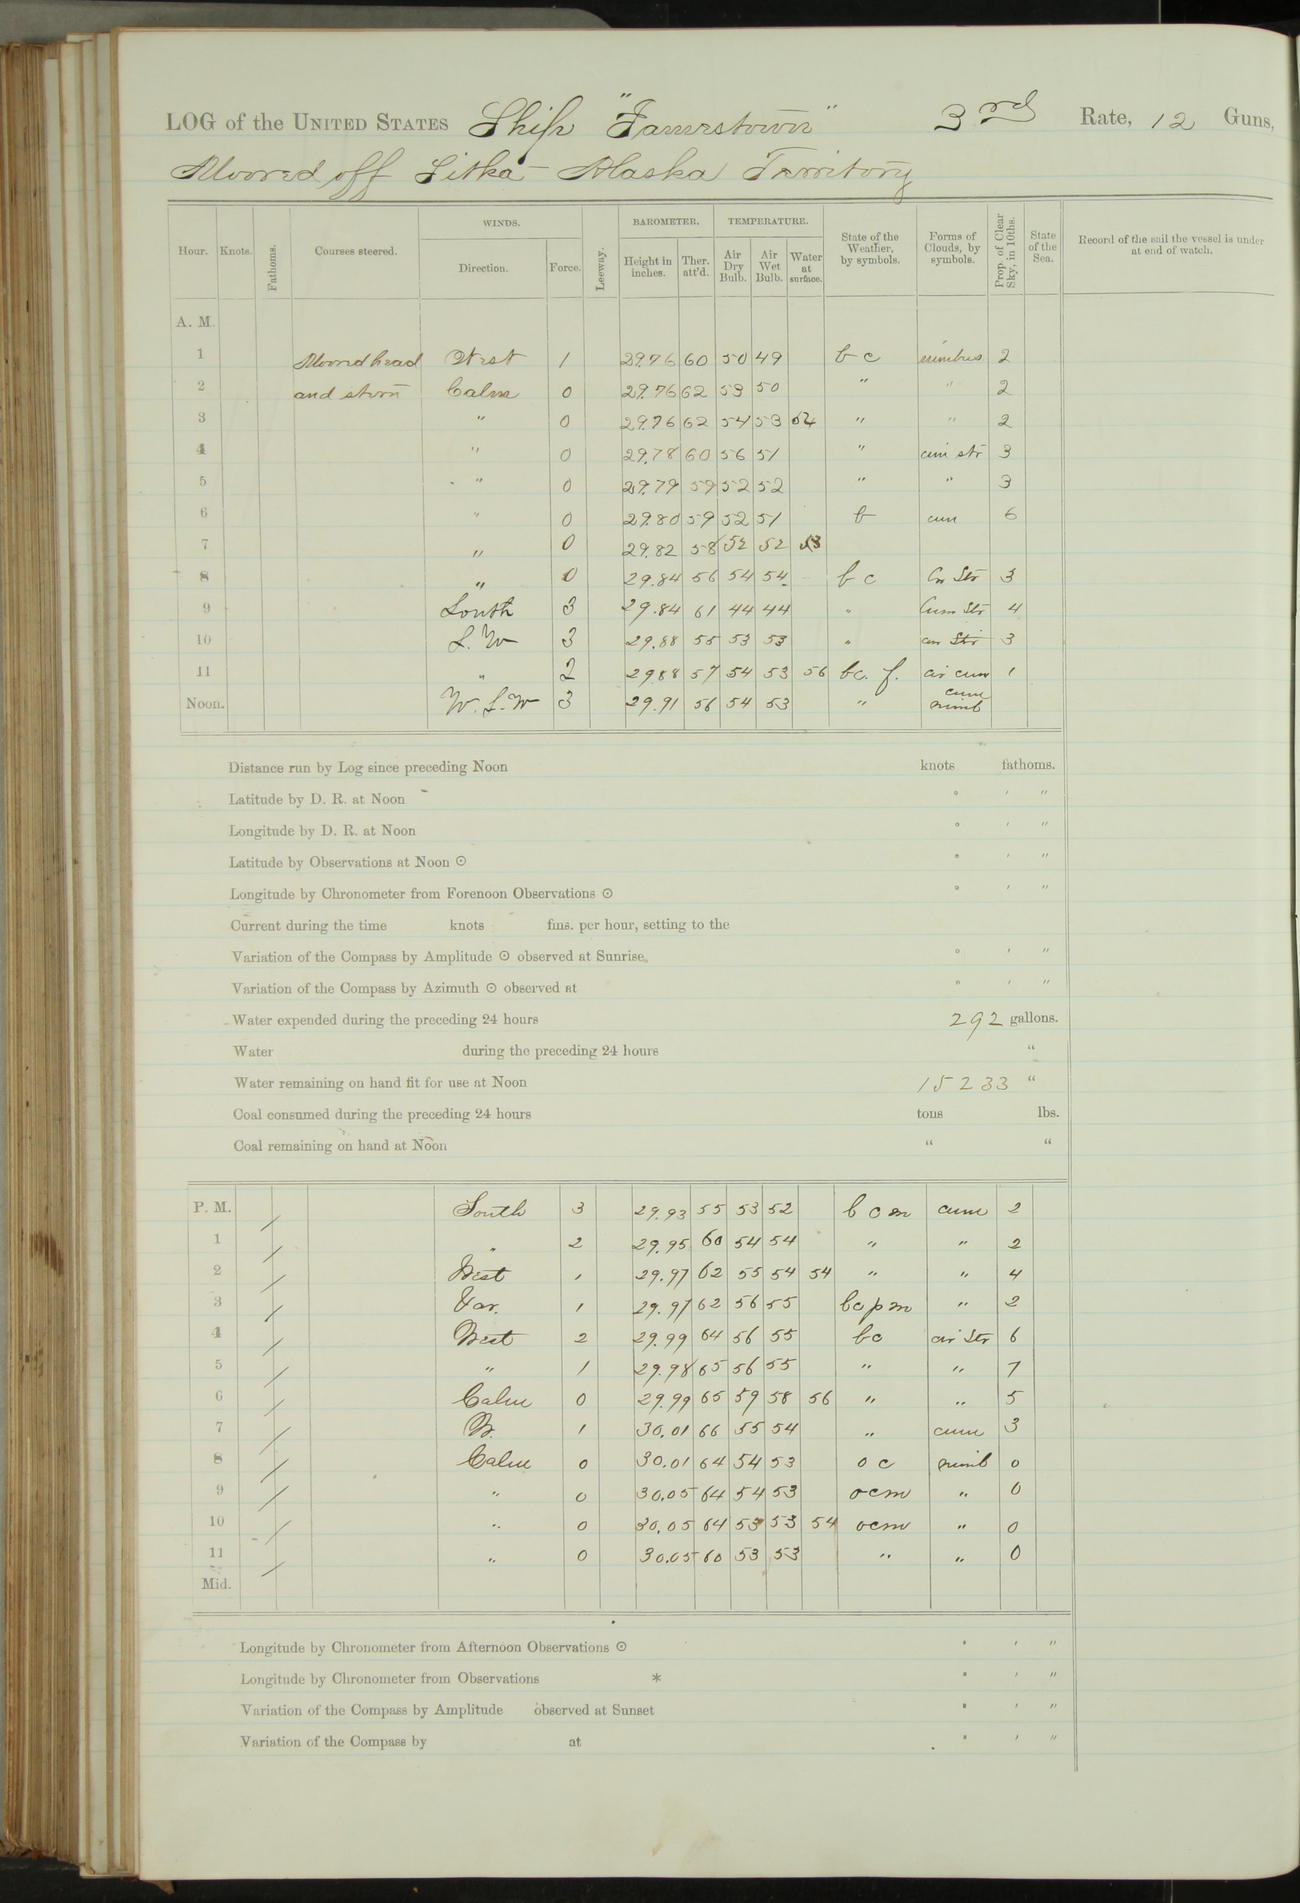 LOG of the UNITED STATES Ship "Jamestown" 3rd Rate, 12 Guns,
Moored off Sitka - Alaska Territory
Hour. Knots. Fathoms. Courses steered. WINDS. Direction. Force. Leeway. BAROMETER. Height in inches. Ther. att'd. TEMPERATURE. Air Dry Bulb. Air Wet Bulb. Water at surface. State of the Weather, by symbols. Forms of Clouds, by symbols. Prop. of Clear Sky, in 10ths. State of the Sea. Record of the sail the vessel is under at end of watch.
A. M.
1 Moored head West 1 29.76 60 50 49 b c nimbus 2
2 and stern Calm 0 29.76 62 53 50 " " 2
3 " 0 29.76 62 54 53 52 " " 2
4 " 0 29.78 60 56 51 " cum str 3
5 " 0 29.79 59 52 52 " " 3
6 " 0 29.80 59 52 51 b cum 6
7 " 0 29.82 58 52 52 53
8 " 0 29.84 56 54 54 b c Cir Str 3
9 South 3 29.84 61 44 44 " Cum Str 4
10 S. W 3 29.88 55 53 53 " cum Str 3
11 " 2 29.88 57 54 53 56 bc. f. cir cum 1
Noon. W. S. W 3 29.91 56 54 53 " cum nimb
Distance run by Log since preceding Noon knots fathoms.
Latitude by D. R. at Noon ° ′ ″
Longitude by D. R. at Noon ° ′ ″
Latitude by Observations at Noon ⊙ ° ′ ″
Longitude by Chronometer from Forenoon Observations ⊙ ° ′ ″
Current during the time knots fms. per hour, setting to the
Variation of the Compass by Amplitude ⊙ observed at Sunrise, ° ′ ″
Variation of the Compass by Azimuth ⊙ observed at ° ′ ″
Water expended during the preceding 24 hours 292 gallons.
Water during the preceding 24 hours "
Water remaining on hand fit for use at Noon 15233 "
Coal consumed during the preceding 24 hours tons lbs.
Coal remaining on hand at Noon " "
P. M. South 3 29.93 55 53 52 b c m cum 2
1 " 2 29.95 60 54 54 " " 2
2 West 1 29.97 62 55 54 54 " " 4
3 Var. 1 29.97 62 56 55 bcpm " 2
4 West 2 29.99 64 56 55 bc cir Str 6
5 " 1 29.98 65 56 55 " " 7
6 Calm 0 29.99 65 59 58 56 " " 5
7 W. 1 30.01 66 55 54 " cum 3
8 Calm 0 30.01 64 54 53 o c nimb 0
9 " 0 30.05 64 54 53 ocm " 0
10 " 0 30.05 64 53 53 54 ocm " 0
11 " 0 30.05 60 53 53 " " 0
Mid.
Longitude by Chronometer from Afternoon Observations ⊙ ° ′ ″
Longitude by Chronometer from Observations * ° ′ ″
Variation of the Compass by Amplitude observed at Sunset ° ′ ″
Variation of the Compass by at ° ′ ″